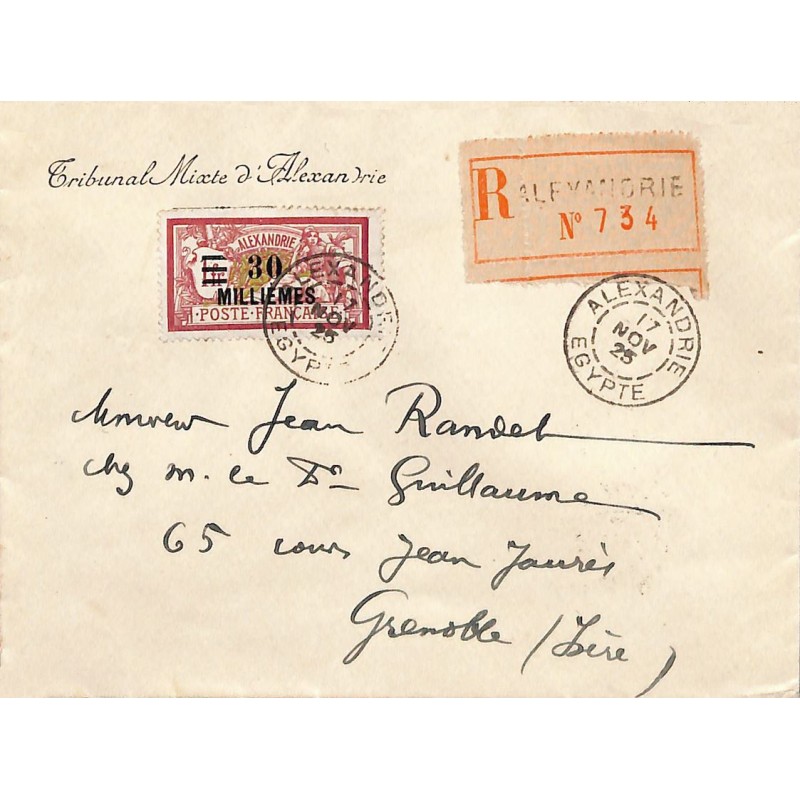 Tribunal Mixte d'Alexandrie
R ALEXANDRIE
N° 734
ALEXANDRIE
30
MILLIÈMES
POSTE FRANÇAISE
ALEXANDRIE
17
NOV
25
EGYPTE
ALEXANDRIE
17
NOV
25
EGYPTE
Monsieur Jean Randet
chez M. le Dr Guillaume
65 cours Jean Jaurès
Grenoble (Isère)